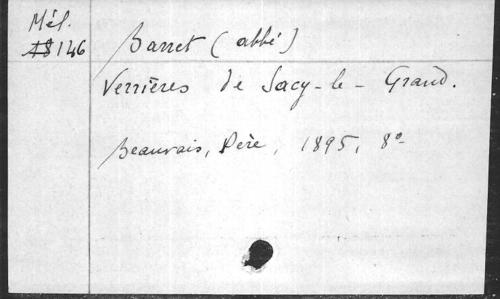 Mél.
18 146
Barret (abbé)
Verrières de Sacy-le-Grand.
Beauvais, Père, 1895, 8º